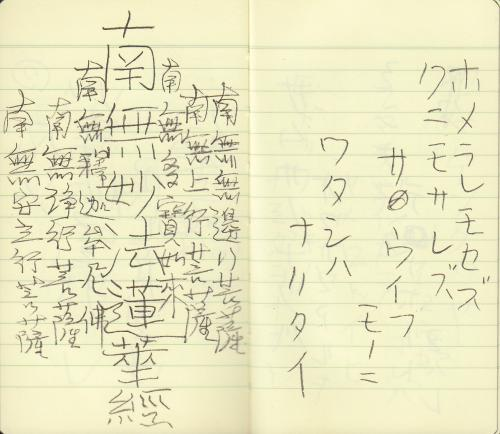 ホメラレモセズ
クニモサレズ
サウイフ
モノニ
ワタシハ
ナリタイ
南無無邊行菩薩
南無上行菩薩
南無多寶如來
南無妙法蓮華經
南無釋迦牟尼佛
南無浄行菩薩
南無安立行菩薩